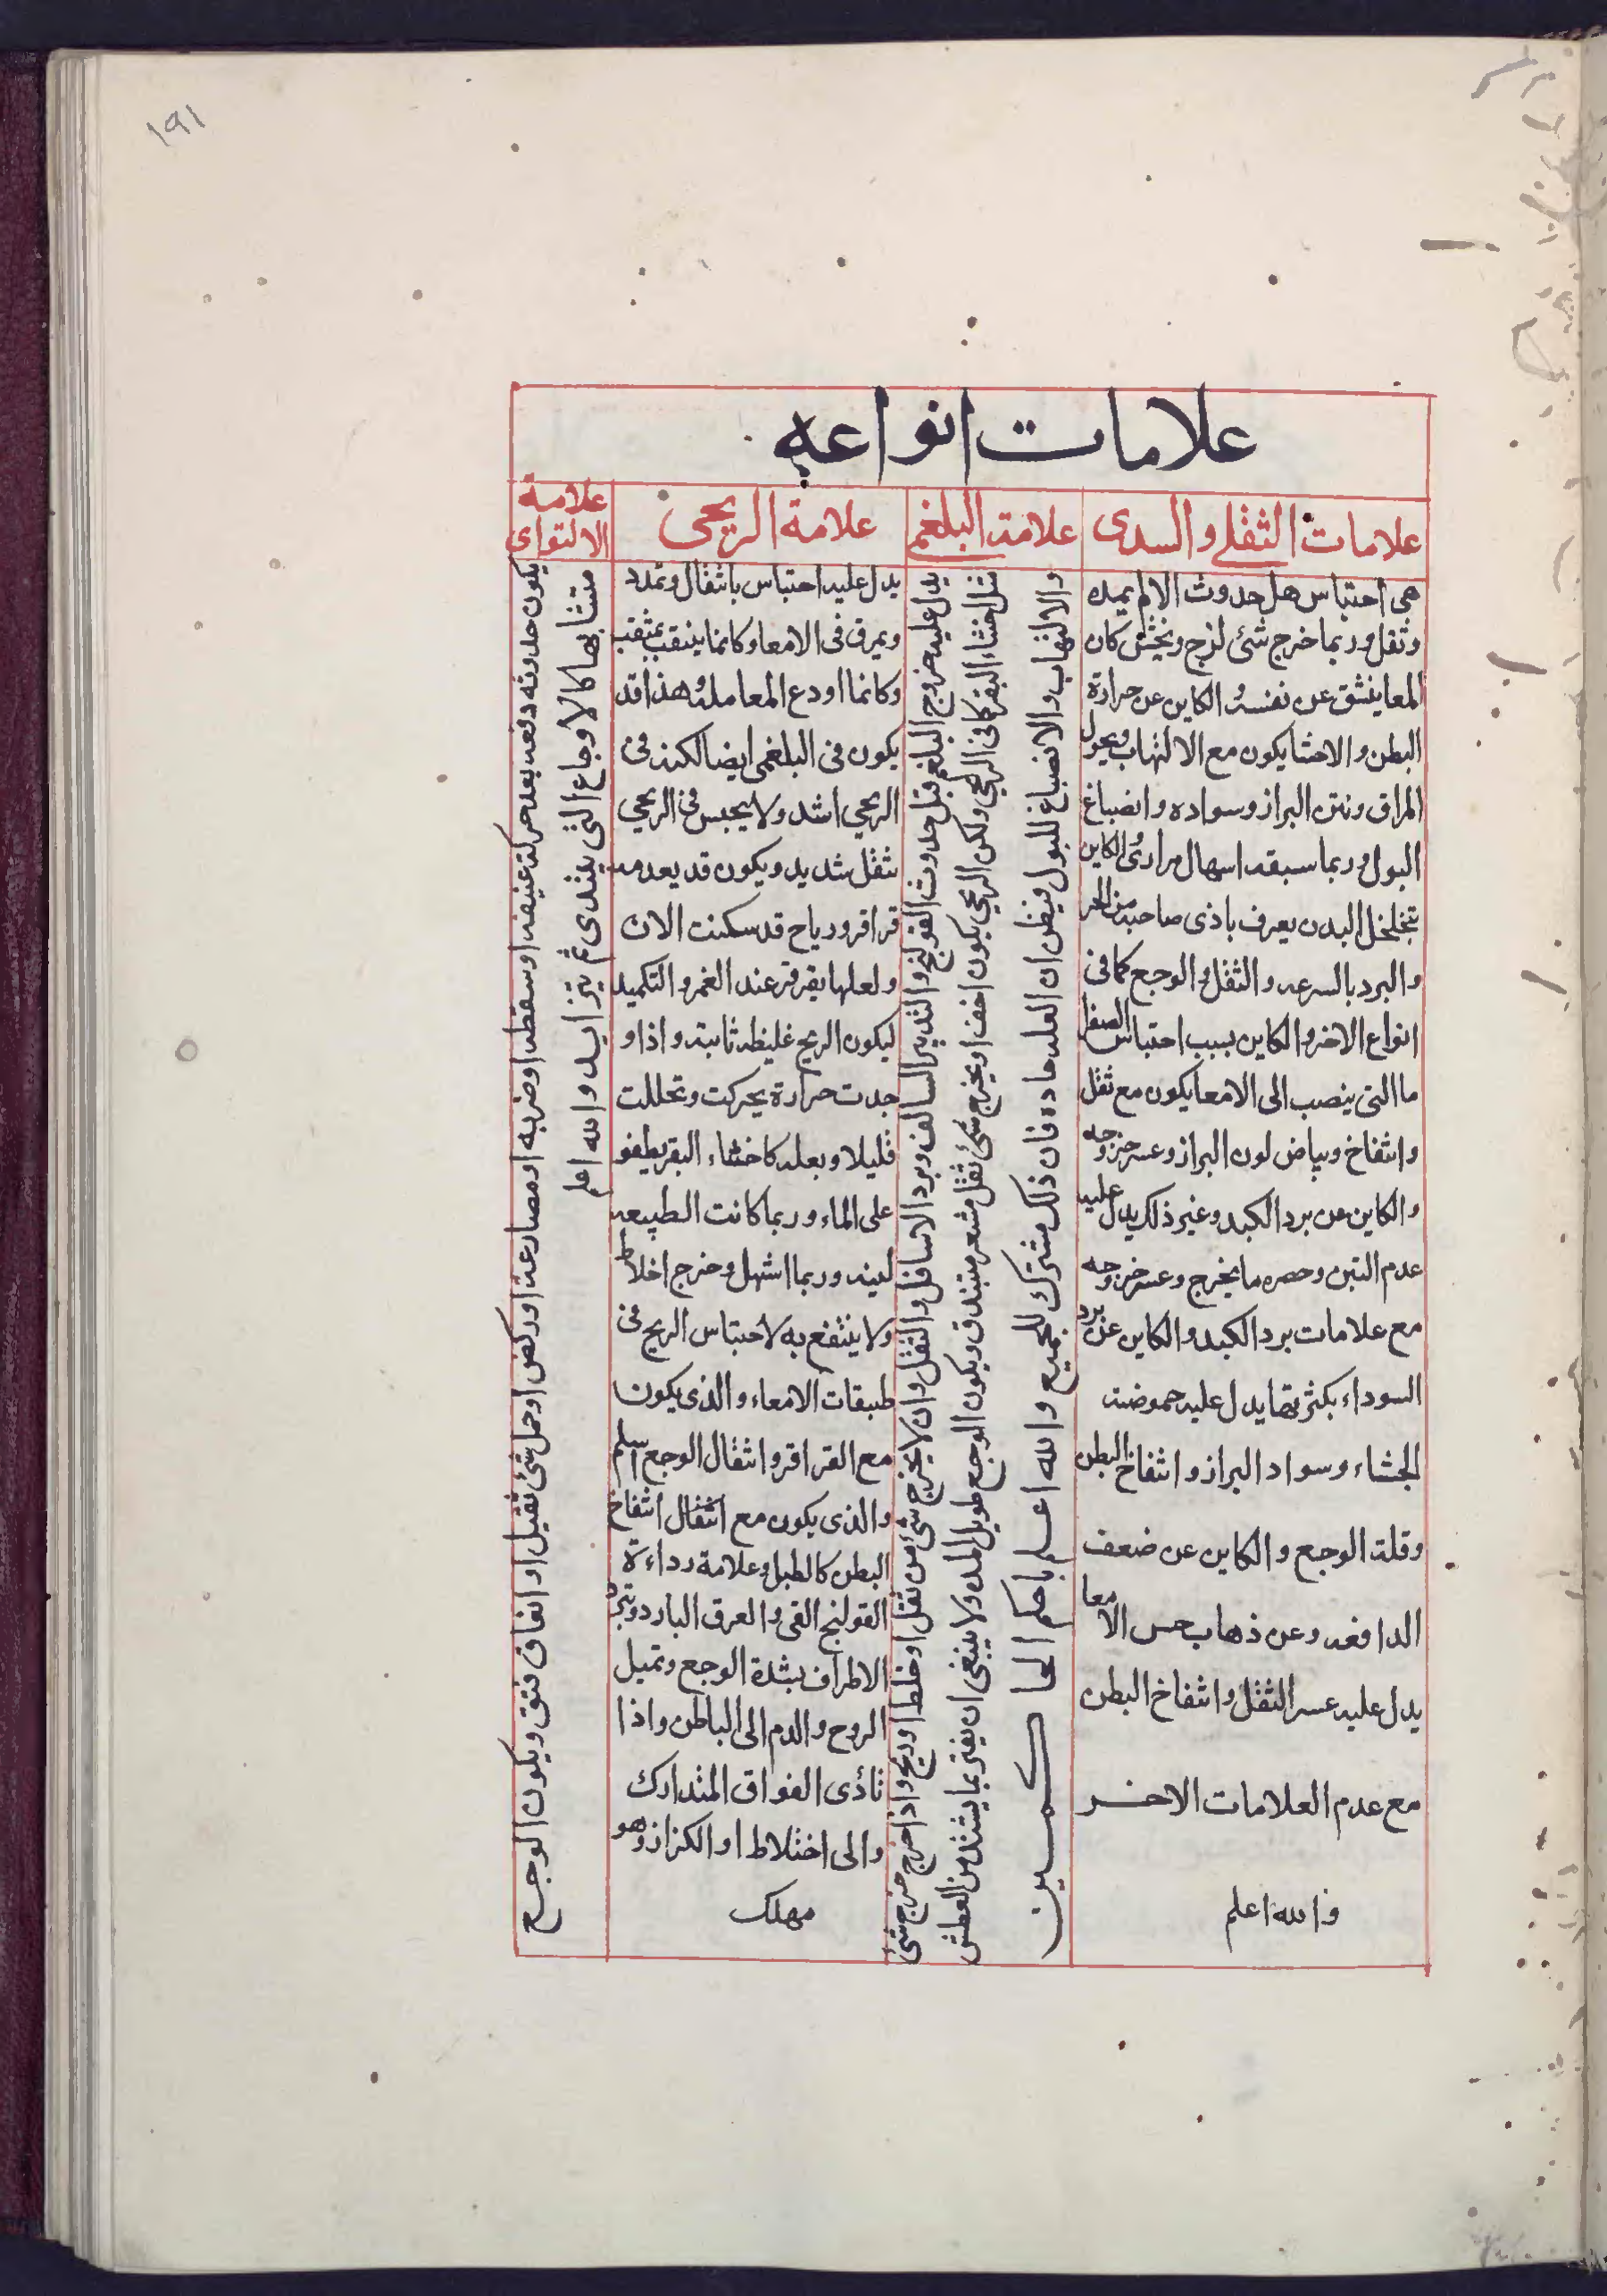 ١٩١
علامات انواعه
علامات الثفلي والسدى
هى احتباس هل حدوث الالم بمده
وثقل وربما خرج شئ لزج ويحس كان
المعا ينشق عن نفسه والكاين عن حرارة
البطن والاحشا يكون مع الالتهاب ونحول
المراق ونتن البراز وسواده وانصباغ
البول وربما سبقه اسهال مرارى والكاين
بتخلخل البدن يعرف باذى صاحبه من الحر
والبرد بالسرعه والثفل والوجع كما فى
انواع الاخر والكاين بسبب احتباس الصفرا
ما التى ينصب الى الامعا يكون مع ثقل
وانتفاخ وبياض لون البراز وعسر خروجه
والكاين من برد الكبد وغير ذلك يدل عليه
عدم التبن وحصره ما يخرج وعسر خروجه
مع علامات برد الكبد والكاين عن برد
السوداء بكثرتها يدل عليه حموضة
الجشاء وسواد البراز وانتفاخ البطن
وقلة الوجع والكاين عن ضعف
الدافعه وعن ذهاب حس الامعا
يدل عليه عسر الثفل وانتفاخ البطن
مع عدم العلامات الاخر
والله اعلم
علامة البلغم
يدل عليه خروج البلغم قبل حدوث القولنج والتدبير السالف وبرد الاسافل والثقل وان لا يخرج شئ من ثفل او خلط او ريح واذا خرج خرج شئ
مثل اخثاء البقر كما فى الريحي ولكن الريحي يكون اخف او يخرج شئ ثفل مشعر متبندق ويكون الوجع طويل المده ولا ينبغى ان يغتر بما يشتد من العطش
والالتهاب والانصباغ للبول فيظن ان العله حاده فان ذلك مشترك للجميع والله اعلم باحكم الحاكمين
علامة الريحى
يدل عليه احتباس باثقال وتمدد
ويمرق فى الامعا وكانما ينقب بمثقب
وكانما اودع المعا مله وهذا قد
يكون فى البلغمى ايضا لكنه فى
الريحي اشد ولا يحبس فى الريحي
ثقل شديد ويكون قد يعدمه
قراقر ورياح قد سكنت الان
ولعلها يقرقر عند الغمر والتكميد
ليكون الريح غليظه ثابته واذا و
جدت حرارة يحركت وتحللت
قليلا وبعله كاخثاء البقر يطفو
على الماء وربما كانت الطبيعه
لينه وربما اسهل وخرج اخلاط
ولا ينتفع به لاحتباس الريح فى
طبقات الامعاء والذى يكون
مع القراقر وانتقال الوجع اسلم
والذى يكون مع انتقال انتفاخ
البطن كالطبل وعلامة رداءة
القولنج القى والعرق البارد وتبرد
الاطراف بشدة الوجع وتميل
الروح والدم الى الباطن واذا
تأذى الفواق المتدارك
والى اختلاط او الكزاز وهو
مهلك
علامة
الالتواى
يكون حدوثه دفعه بعد حركة عنيفه او سقطه او ضربه او مصارعة او ركض او حمل شئ ثقيل او انفاق فتق ويكون الوجع
متشابها كالاوجاع التى يبتدى ثم يتزايد والله اعلم